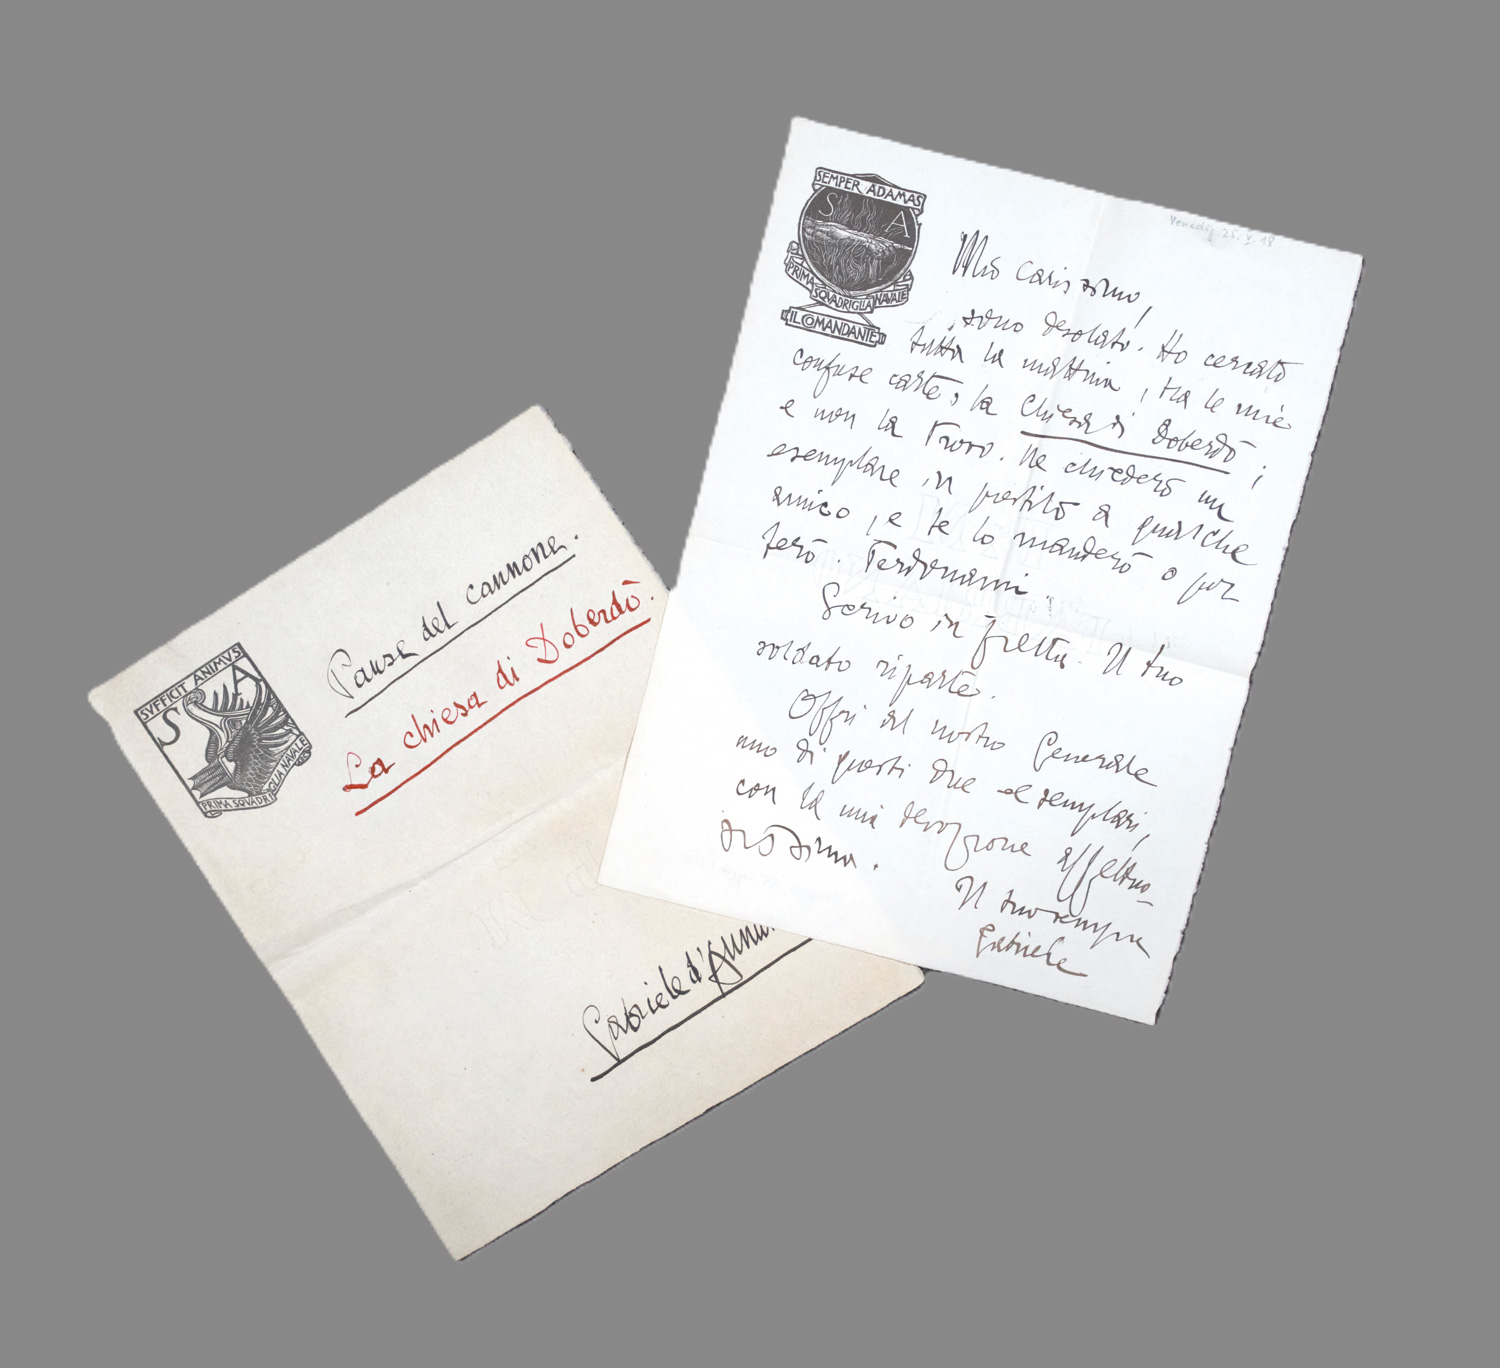 SVFFICIT ANIMVS
S A
PRIMA SQVADRIGLIA NAVALE
Pausa del cannone.
La chiesa di Doberdò.
Gabriele d'Annun
SEMPER ADAMAS
S A
PRIMA SQVADRIGLIA NAVALE
IL COMANDANTE
Venedig 25. V. 18
Mio carissimo,
sono desolato. Ho cercato
tutta la mattina, tra le mie
confuse carte, la Chiesa di Doberdò;
e non la trovo. Ne chiederò un
esemplare in prestito a qualche
amico, e te lo manderò o por
terò. Perdonami.
Scrivo in fretta. Il tuo
soldato riparte.
Offri al nostro Generale
uno di questi due esemplari,
con la mia devozione affettuo-
sissima.
Il tuo sempre
Gabriele